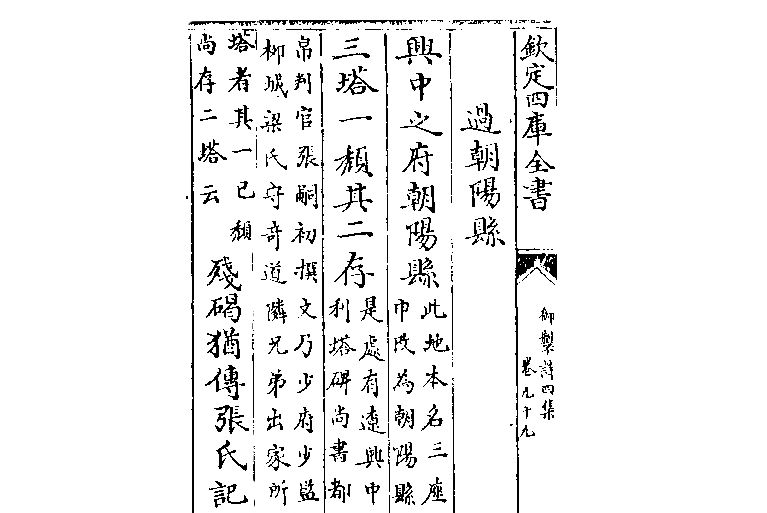 欽定四庫全書
御製詩四集
卷九十九
過朝陽縣
興中之府朝陽縣
此地本名三座
巾改為朝陽縣
三塔一頽其二存
是處有遼興中
利塔碑尚書都
帛判官張嗣初撰文乃少府少監
柳城梁氏守奇道隣兄弟出家所
塔者其一已頽
尚存二塔云
殘碣猶傳張氏記